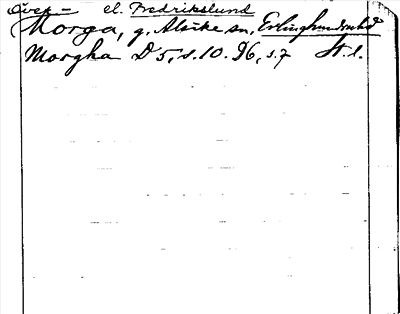 Över- el. Fredrikslund
Morga, g. Alsike sn, Erlinghundra hd
Morgha D 5, s. 10. 96, s. 7 St. l.